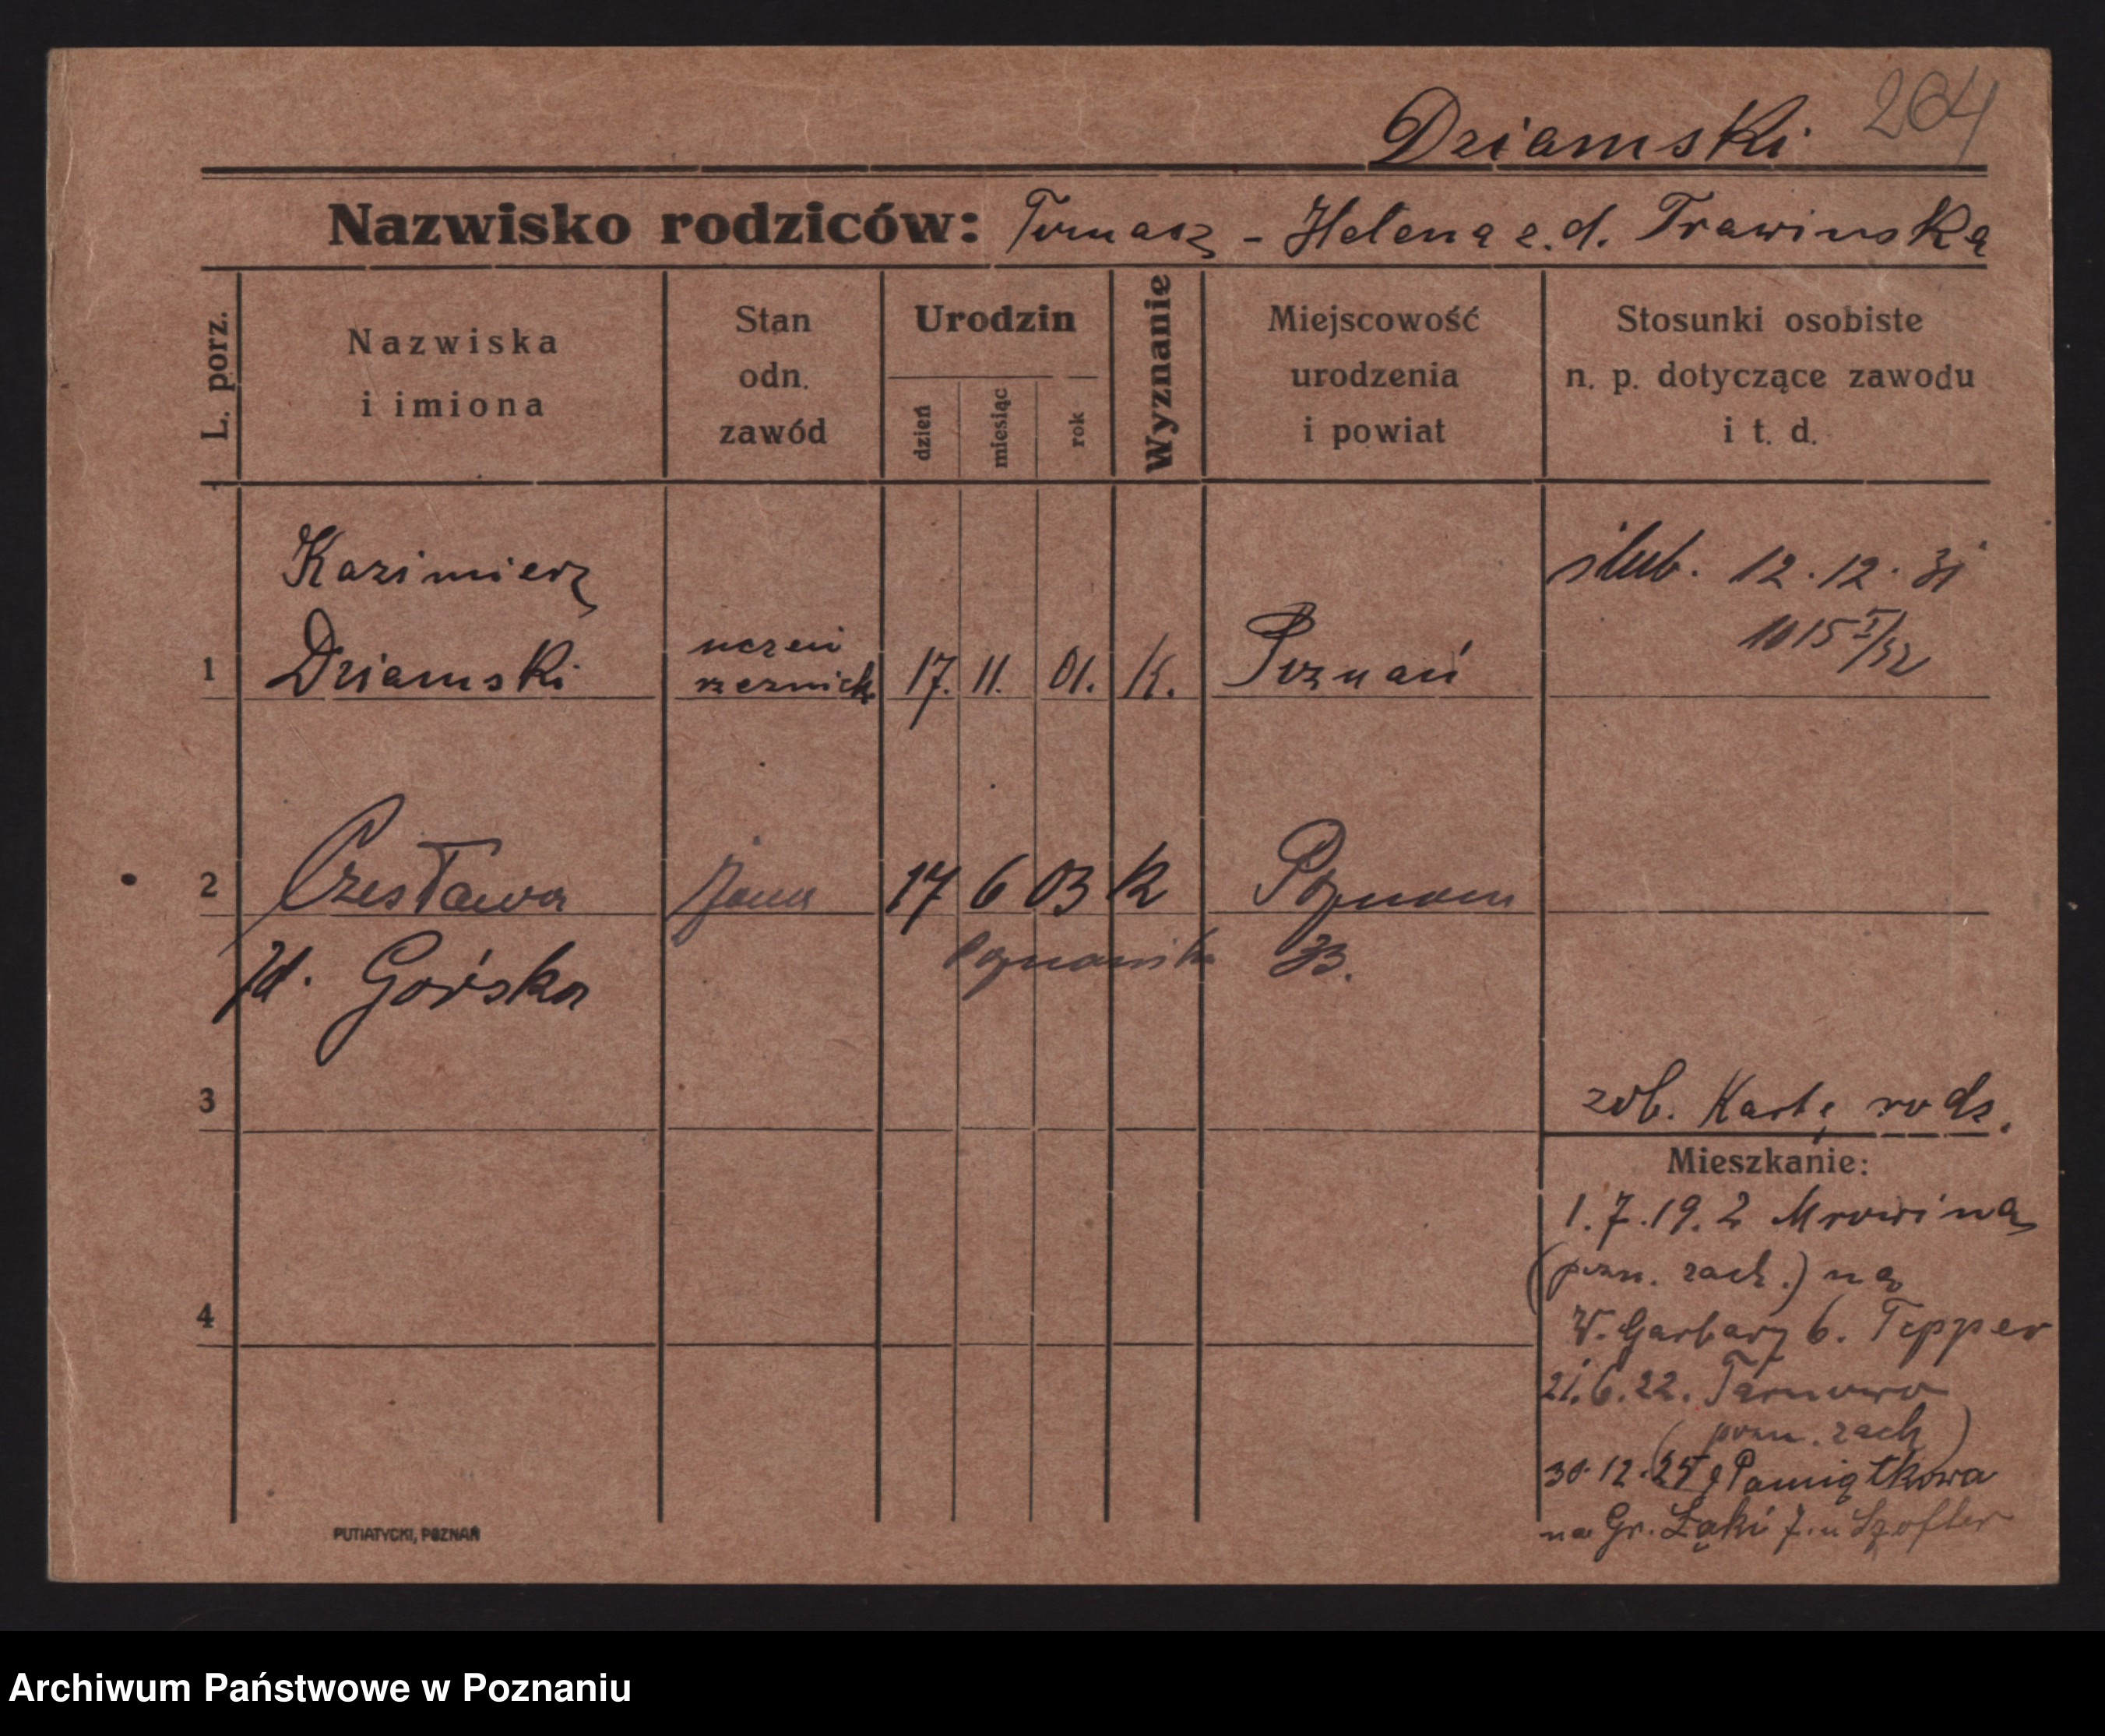 264
Dziamski
Nazwisko rodziców: Tomasz - Helena z.d. Trawinska
L. porz.
Nazwiska
i imiona
Stan
odn.
zawód
Urodzin
dzień
miesiąc
rok
Wyznanie
Miejscowość
urodzenia
i powiat
Stosunki osobiste
n. p. dotyczące zawodu
i t. d.
Kazimierz
ślub. 12.12.31
1015 I/32
1 Dziamski uczeń rzeznick 17. 11. 01. K. Poznań
2 Czesława żona 17 6 03 k Poznań
zd. Górska
B.
3
zob. Kartę rodz.
Mieszkanie:
1.7.19. z Mrowina
(pozn. zach.) na
W. Garbary 6. Tepper
4
21.6.22. Tarnowo
(pozn. zach)
30.12.25 z Pamiątkowa
na Gr. Łąki 7. u Szofler
PUTIATYCKI, POZNAŃ
Archiwum Państwowe w Poznaniu